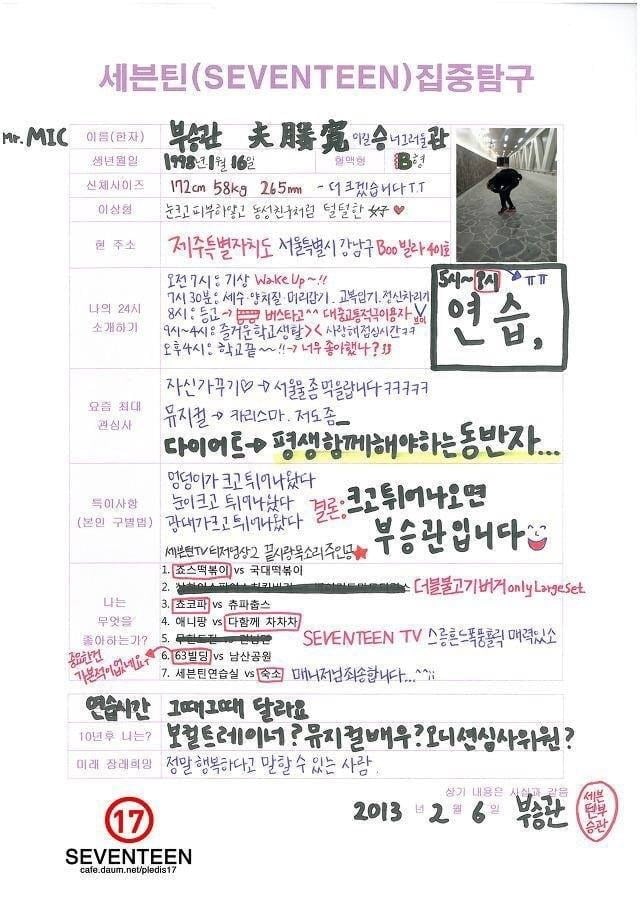 세븐틴(SEVENTEEN)집중탐구
Mr.MIC
이름(한자) 부승관 夫勝寬 이길승 너그러울관
생년월일 1998년 1월 16일 혈액형 B형
신체사이즈 172cm 58kg 265mm - 더 크겠습니다 T.T
이상형 눈크고 피부하얗고 동성친구처럼 털털한 女子♥
현 주소 제주특별자치도 서울특별시 강남구 Boo빌라 401호
나의 24시 소개하기
오전 7시: 기상 Wake Up~!!
7시 30분: 세수·양치질·머리감기·교복입기·정신차리기
8시: 등교→ 버스타고^^ 대중교통적극이용자
9시~4시: 즐거운학교생활>< 사랑해점심시간ㅋㅋ
오후4시: 학교끝~!!→너무좋아했나?!!
5시~8시 → ㅠㅠ
연습,
요즘 최대 관심사
자신가꾸기♡→서울물좀먹을랍니다ㅋㅋㅋㅋㅋ
뮤지컬→ 카리스마. 저도좀_
다이어트→평생함께해야하는동반자...
특이사항 (본인 구별법)
엉덩이가크고튀어나왔다
눈이크고 튀어나왔다
광대가크고튀어나왔다
결론: 크고튀어나오면 부승관입니다
세븐틴TV티저영상2 끝사랑목소리주인공★
나는 무엇을 좋아하는가?
1. 죠스떡볶이 vs 국대떡볶이
2. 더블불고기버거 only Large set
3. 쵸코파 vs 츄파춥스
4. 애니팡 vs 다함께 차차차
5. 무한도전 vs 런닝맨 SEVENTEEN TV 스릉흔드폭풍훌릭 매력있소
6. 63빌딩 vs 남산공원
7. 세븐틴연습실 vs 숙소 매니저님죄송합니다...^^;;
중요한건 가본적이없네요
연습시간 그때그때 달라요
10년후 나는? 보컬트레이너?뮤지컬배우?오디션심사위원?
미래 장래희망 정말 행복하다고 말할 수 있는 사람
상기 내용은 사실과 같음
2013 년 2 월 6 일 부승관
세븐틴부승관
17
SEVENTEEN
cafe.daum.net/pledis17